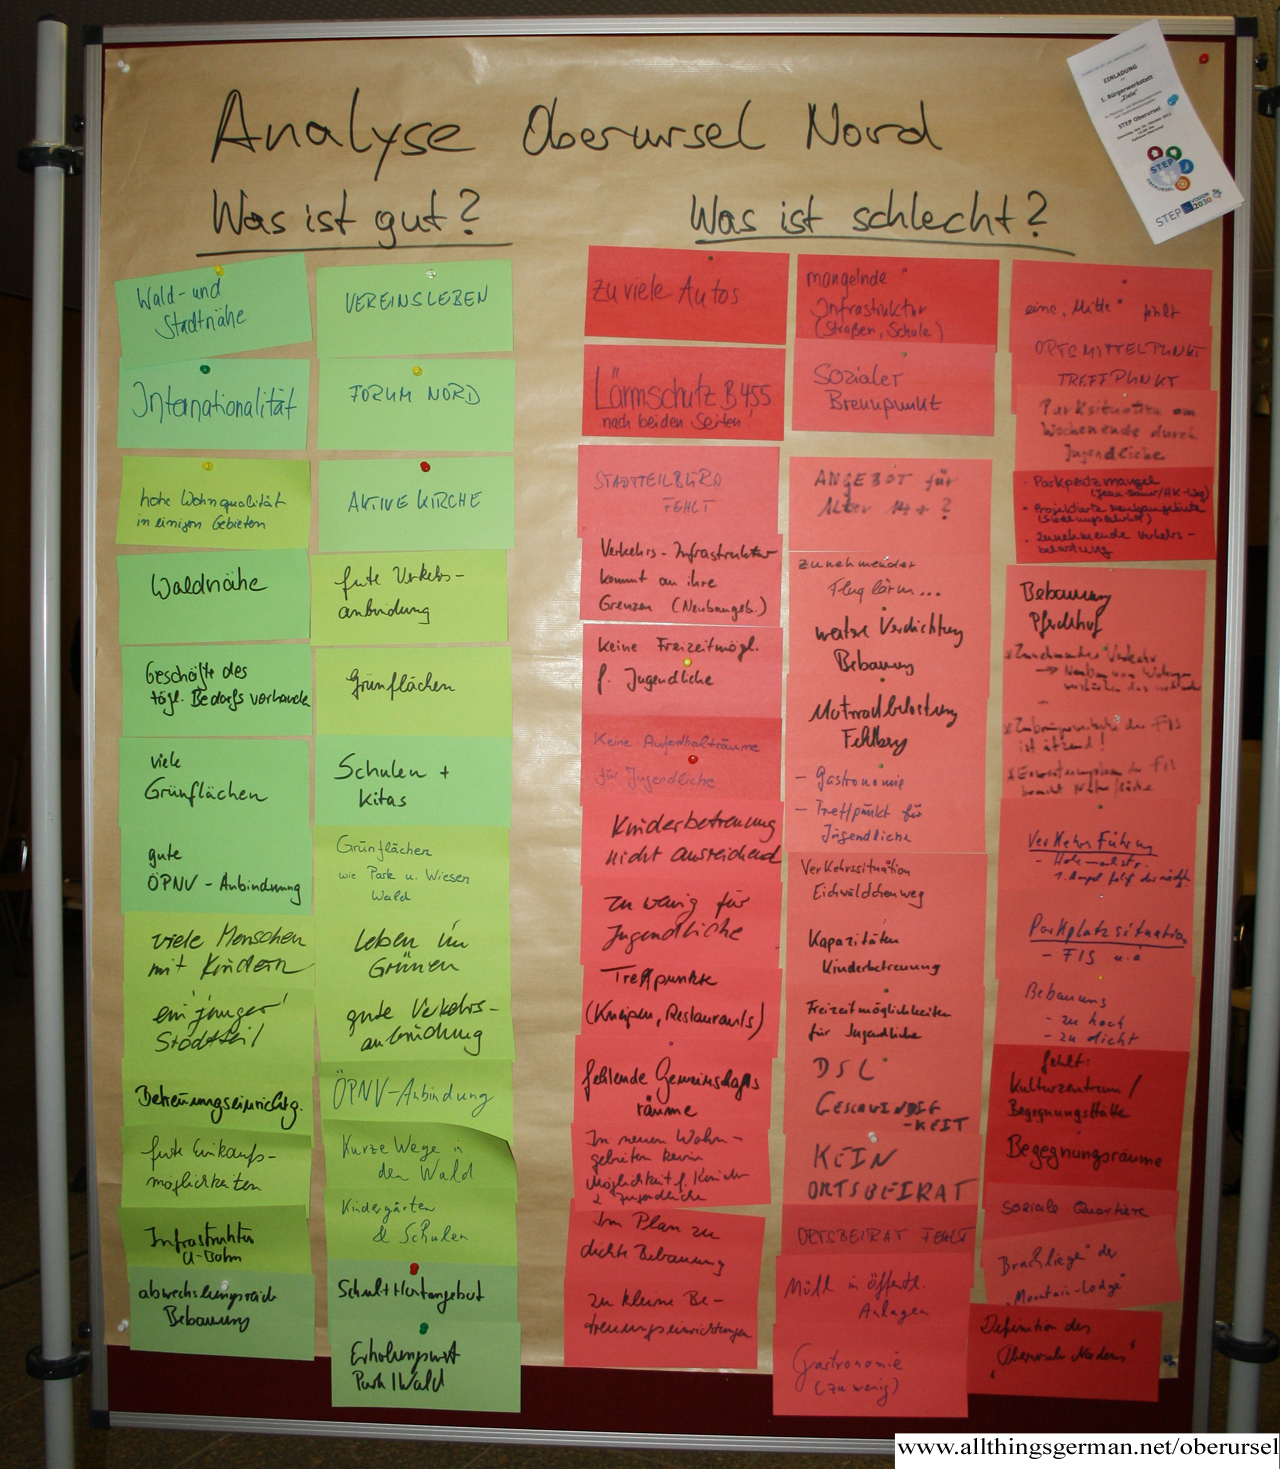 Analyse Oberursel Nord
Was ist gut?
Wald- und
Stadtnähe
Internationalität
hohe Wohnqualität
in einigen Gebieten
Waldnähe
Geschäfte des
tägl. Bedarfs vorhanden
viele
Grünflächen
gute
ÖPNV - Anbindung
viele Menschen
mit Kindern
ein 'junger'
Stadtteil
Betreuungseinrichtg.
gute Einkaufs-
möglichkeiten
Infrastruktur
U-Bahn
abwechslungsreiche
Bebauung
VEREINSLEBEN
FORUM NORD
AKTIVE KIRCHE
gute Verkehrs-
anbindung
Grünflächen
Schulen +
Kitas
Grünflächen
wie Park u. Wiesen
Wald
Leben im
Grünen
gute Verkehrs-
anbindung
ÖPNV-Anbindung
Kurze Wege in
den Wald
Kindergärten
& Schulen
Schul+Hortangebot
Erholungswert
Park/Wald
Was ist schlecht?
zu viele Autos
Lärmschutz B455
nach beiden Seiten!
STADTTEILBÜRO
FEHLT
Verkehrs-Infrastruktur
kommt an ihre
Grenzen (Neubaugeb.)
keine Freizeitmögl.
f. Jugendliche
Keine Aufenthalträume
für Jugendliche
Kinderbetreuung
nicht ausreichend
zu wenig für
Jugendliche
Treffpunkte
(Kneipen, Restaurants)
fehlende Gemeinschafts
räume
In neuen Wohn-
gebieten keine
Möglichkeit f. Kinder
u. Jugendliche
Im Plan zu
dichte Bebauung
zu kleine Be-
treuungseinrichtungen
mangelnde
Infrastruktur
(Straßen, Schule)
Sozialer
Brennpunkt
ANGEBOT für
Alter 14+?
zunehmender
Fluglärm...
weitere Verdichtung
Bebauung
Motorradbelastung
Feldberg
- Gastronomie
- Treffpunkt für
Jugendliche
Verkehrssituation
Eichwäldchenweg
Kapazitäten
Kinderbetreuung
Freizeitmöglichkeiten
für Jugendliche
DSL
GESCHWINDIG
-KEIT
KEIN
ORTSBEIRAT
ORTSBEIRAT FEHLT
Müll in öffentl.
Anlagen
Gastronomie
(zu wenig)
eine "Mitte" fehlt
ORTSMITTELPUNKT
TREFFPUNKT
Parksituation am
Wochenende durch
Jugendliche
• Parkplatzmangel
• Projektierte
• Zunehmende Verkehrs-
belastung
Bebauung
Pferdehof
* Zunehmender Verkehr
→ Neubau von Wohnungen
* Zubringerverkehr der FIS
ist ätzend!
* Erweiterungsbau der FIS
braucht Naturfläche
Verkehrsführung
- Hohemarkstr.
1. Ampel folgt der nächsten
Parkplatzsituation
- FIS u.a
Bebauung
- zu hoch
- zu dicht
fehlt:
Kulturzentrum/
Begegnungsstätte
Begegnungsräume
soziale Quartiere
"Brachliegen" der
"Mountain-Lodge"
Definition des
"Oberursler Nordens"
EINLADUNG
1. Bürgerwerkstatt
„Ziele"
STEP Oberursel
STEP
OBERURSEL
STEP VISION 2030
www.allthingsgerman.net/oberursel